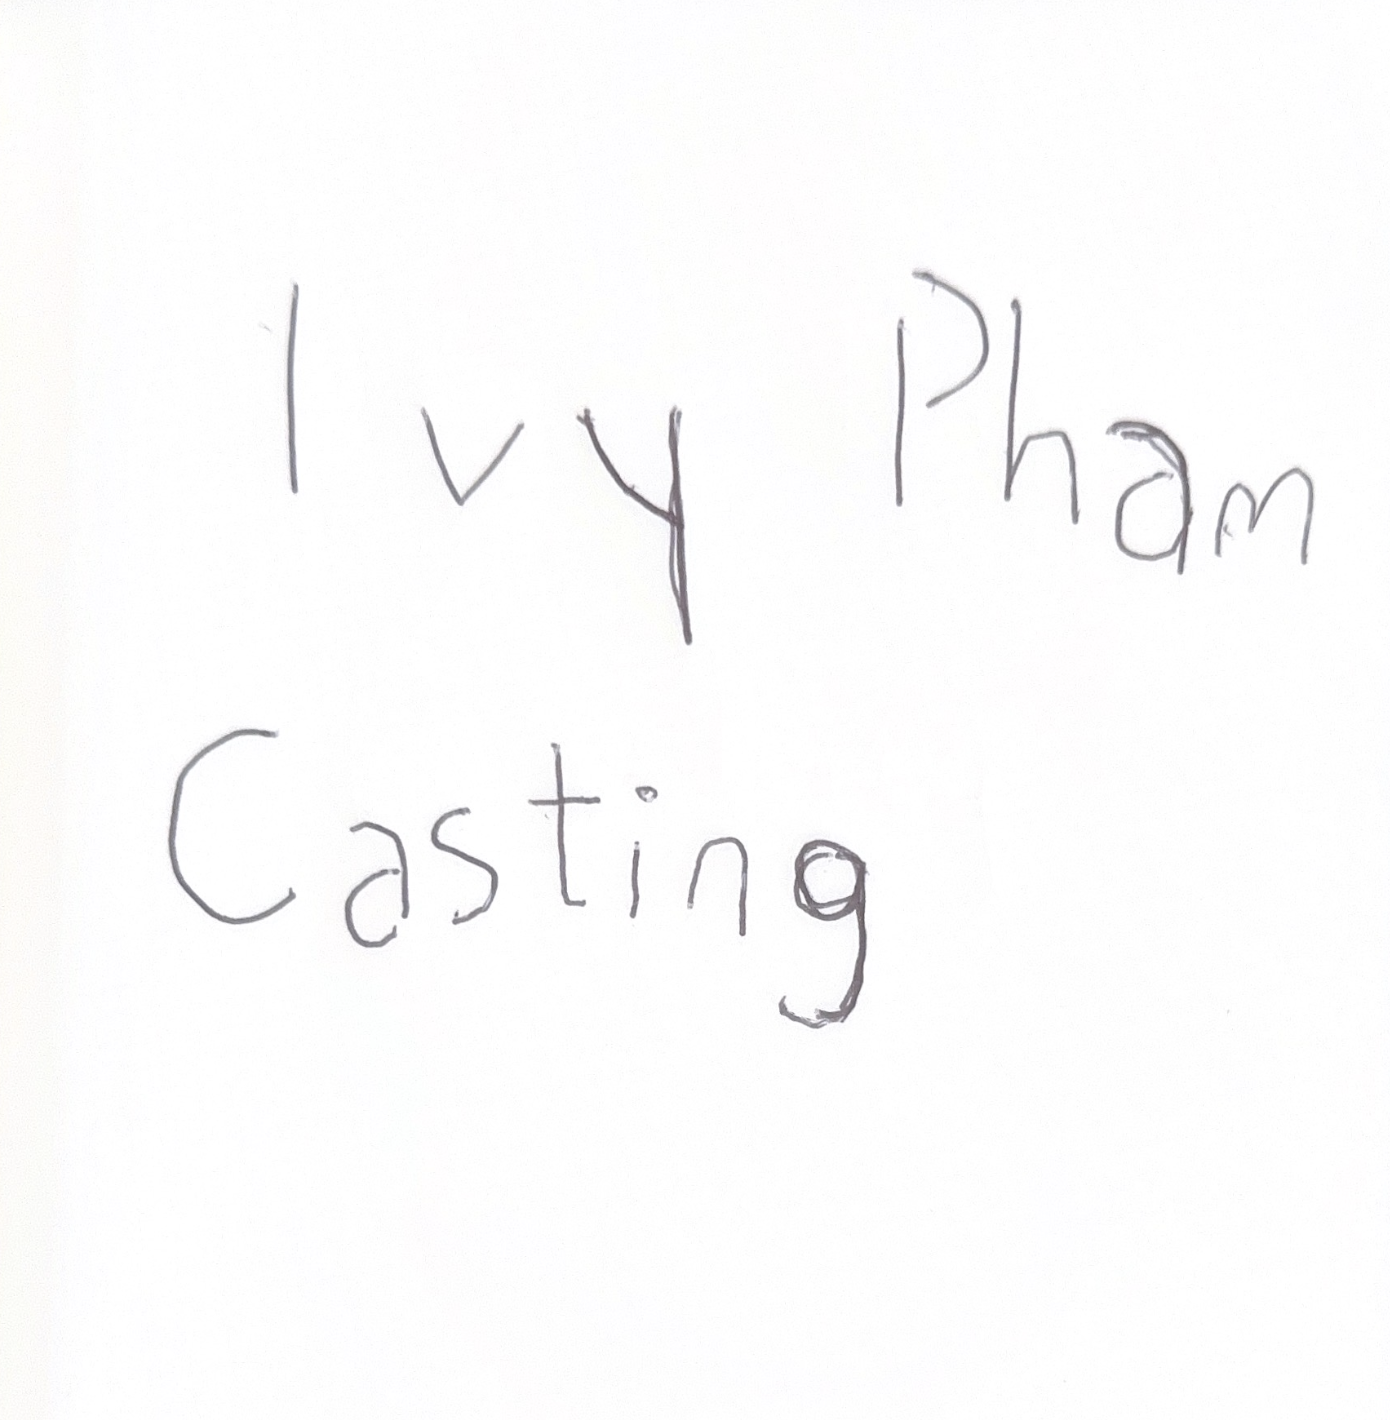 Ivy Pham
Casting